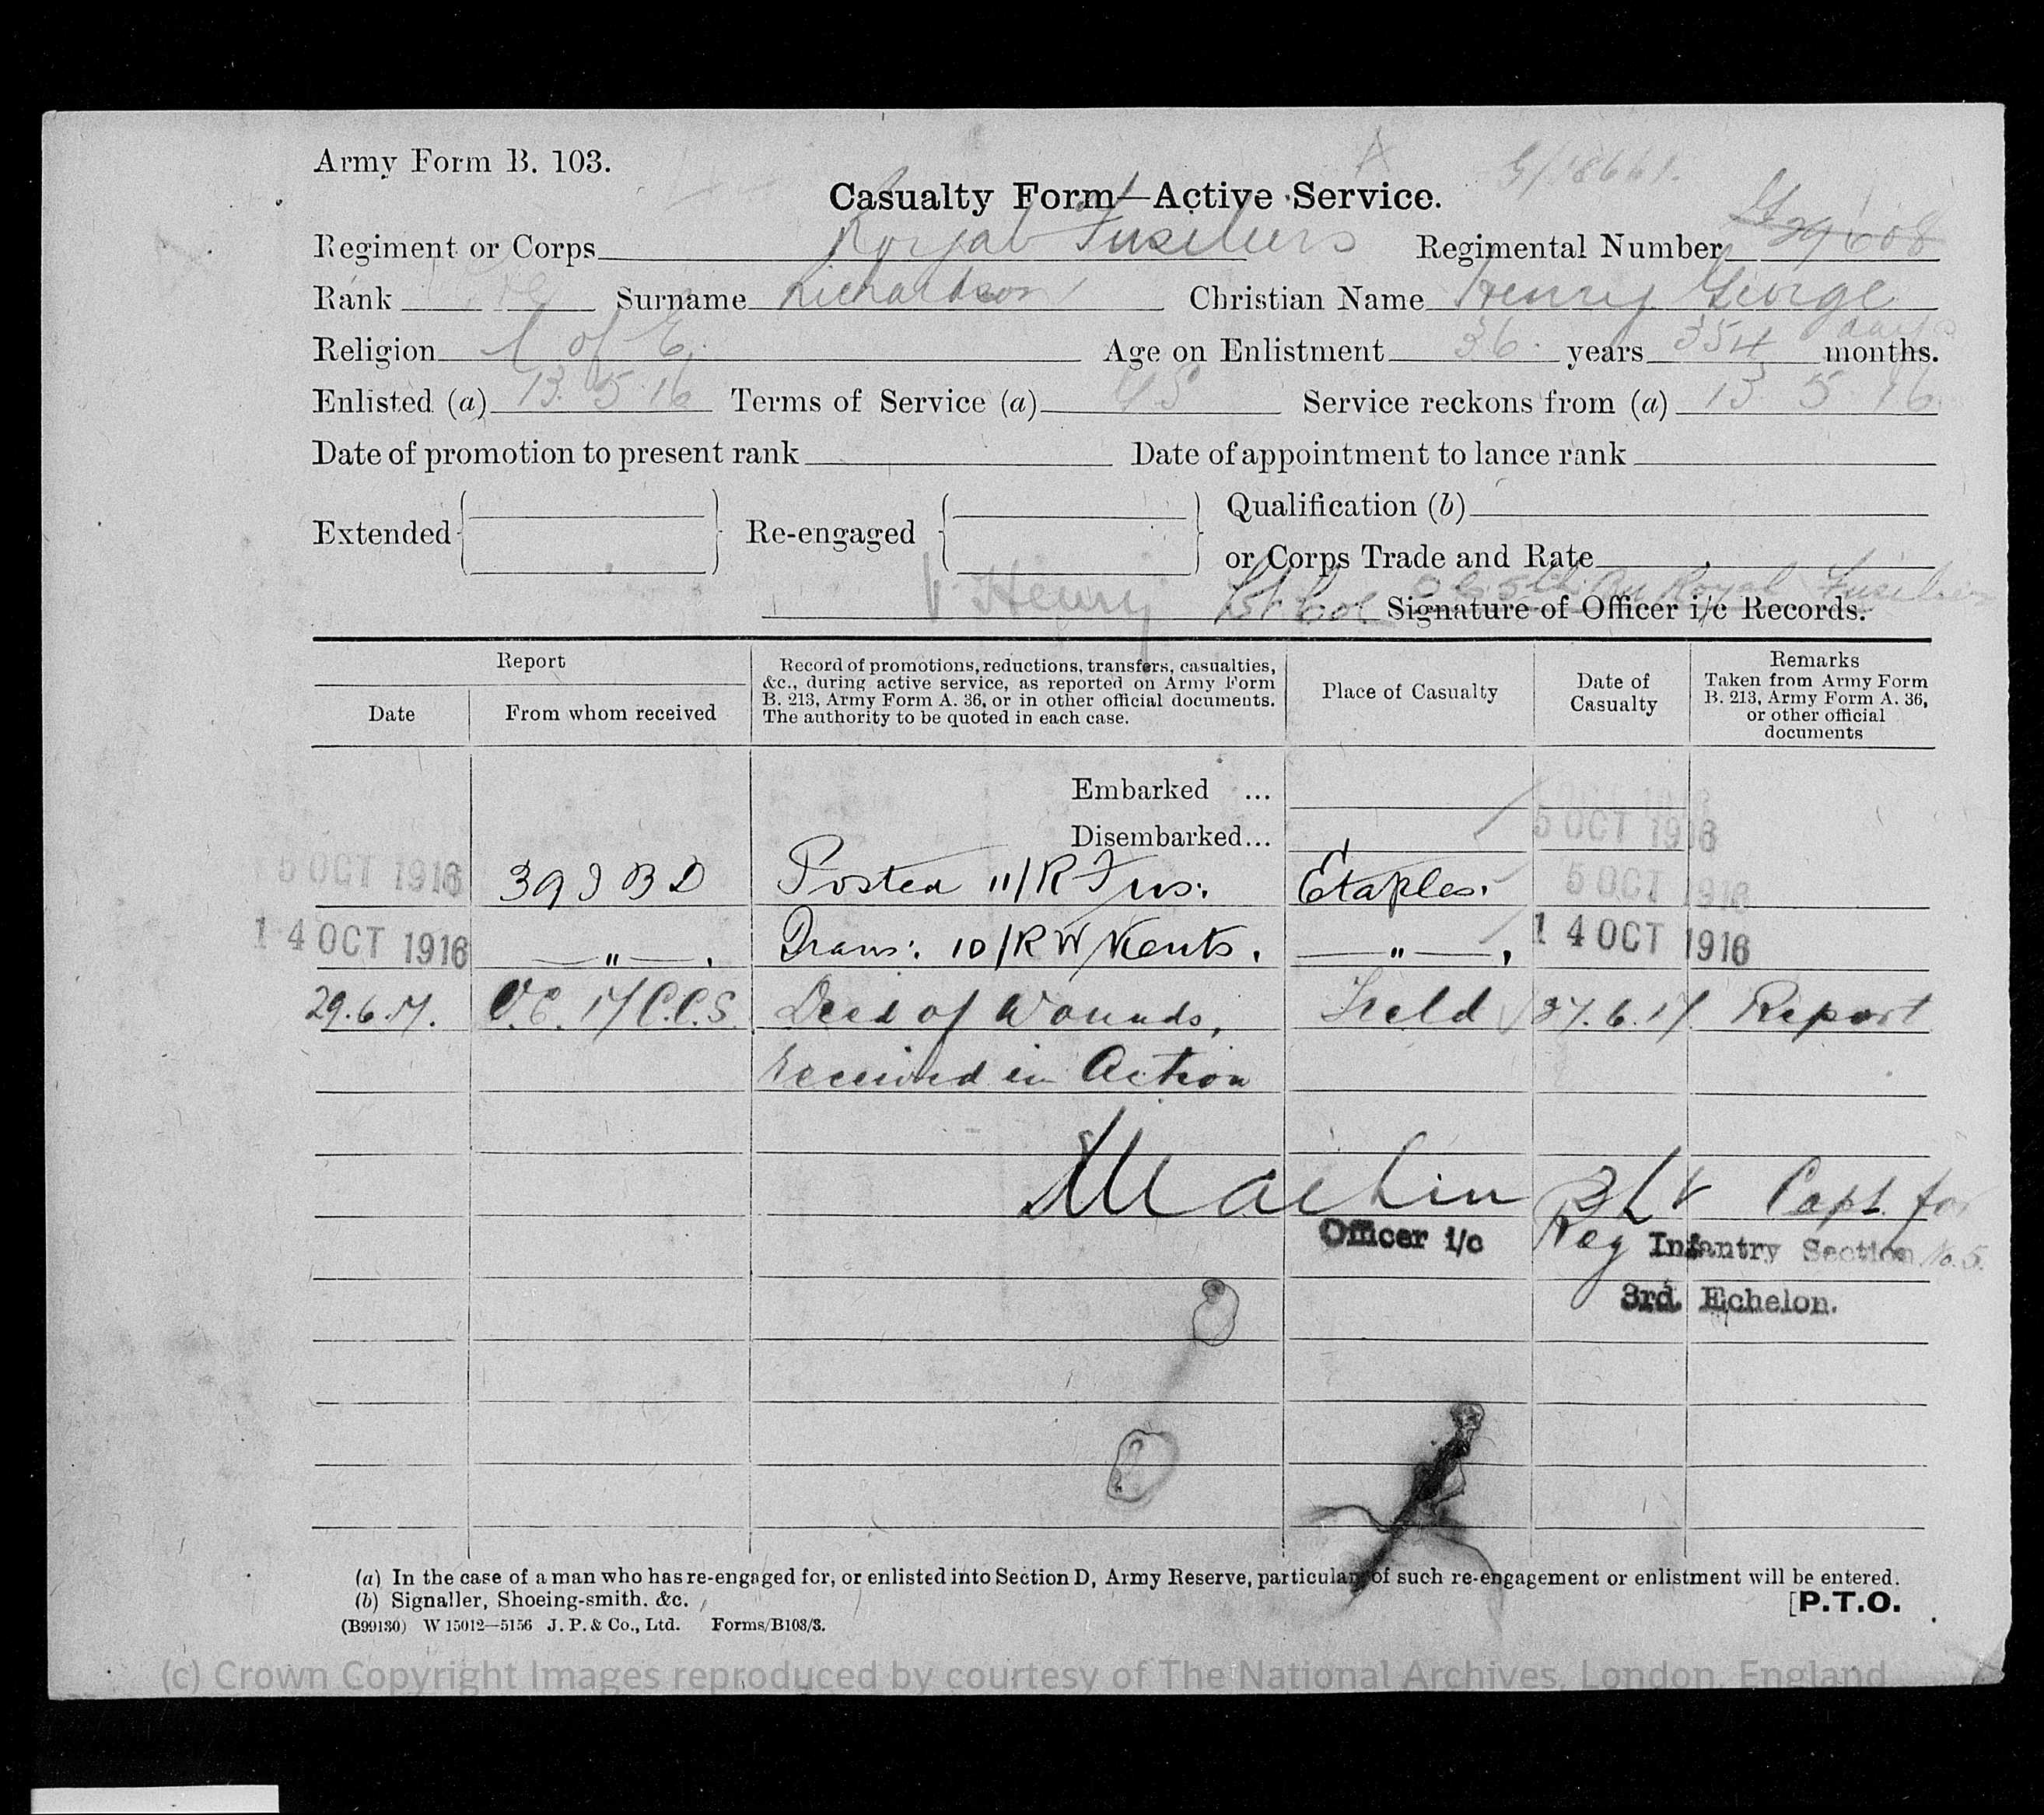 Army Form B. 103.
G/18661.
Casualty Form—Active Service.
Regiment or Corps Royal Fusiliers Regimental Number G 29608
Rank Pte Surname Richardson Christian Name Henry George
Religion C of E. Age on Enlistment 36 years 354 days months.
Enlisted (a) 13.5.16 Terms of Service (a) Service reckons from (a) 13 5 16
Date of promotion to present rank Date of appointment to lance rank
Extended Re-engaged Qualification (b)
or Corps Trade and Rate
V Henry Lt Col O C 5th Bn Royal Fusiliers
Signature of Officer i/c Records.
Report
Date From whom received
Record of promotions, reductions, transfers, casualties,
&c., during active service, as reported on Army Form
B. 213, Army Form A. 36, or in other official documents.
The authority to be quoted in each case.
Place of Casualty
Date of
Casualty
Remarks
Taken from Army Form
B. 213, Army Form A. 36,
or other official
documents
Embarked ...
Disembarked... 5 OCT 1916
5 OCT 1916 39 I B D Posted 11/R Fus: Etaples. 5 OCT 1916
14 OCT 1916 —"—. Trans: 10/R W Kents. —"—, 14 OCT 1916
29.6.17. O.C. 17 C.C.S. Died of Wounds, Field 27.6.17 Report
received in Action
Capt. for
Officer i/c Reg Infantry Section No. 5.
3rd Echelon.
(a) In the case of a man who has re-engaged for, or enlisted into Section D, Army Reserve, particulars of such re-engagement or enlistment will be entered.
(b) Signaller, Shoeing-smith. &c.
[P.T.O.
(B99130) W 15012—5156 J. P. & Co., Ltd. Forms/B103/3.
(c) Crown Copyright Images reproduced by courtesy of The National Archives, London, England.